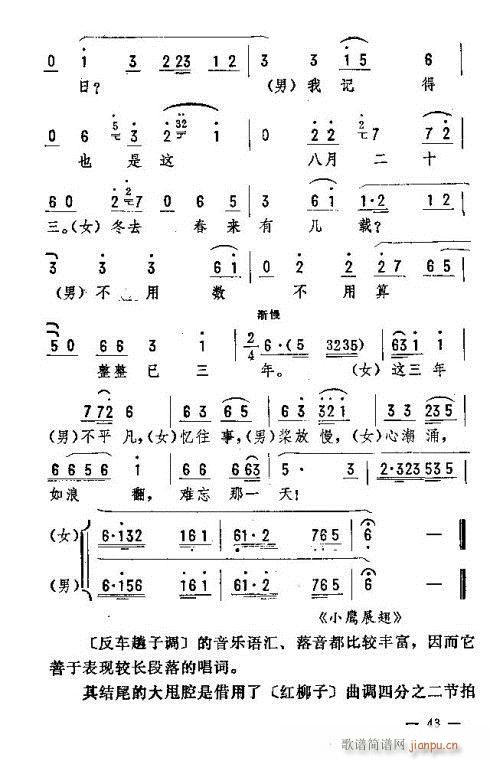 0 1 3 2 23 1 2 | 3 3 3 5 6
日？ (男)我 记 得
0 6 5 3 32 2 1 | 0 2 2 2 7 7 2
也 是 这 八 月 二 十
6 0 2 2 7 0 6 5 | 3 6 1 1·2 1 2
三。(女)冬 去 春 来 有 几 载？
3 3 3 6 1 | 0 2 2 2 7 6 5
(男)不 用 数 不 用 算
渐慢
5 0 6 6 3 1 | 2/4 6·(5 3235) | 6 3 1 1
整 整 已 三 年。 (女)这 三 年
7 7 2 6 | 6 3 6 5 | 6 3 3 2 1 | 0 3 2 3 5
(男)不 平 凡，(女)忆 往 事，(男)桨 放 慢，(女)心 潮 涌，
6 6 5 6 1 | 6 6 6 6 3 | 5 · 3 | 2·3 23 5 3 5
如 浪 翻， 难 忘 那 一 天！
(女) 6·1 3 2 1 6 1 | 6 1·2 7 6 5 | 6 —
(男) 6·1 5 6 1 6 1 | 6 1·2 7 6 5 | 6 —
《小鹰展翅》
〔反车趟子调〕的音乐语汇、落音都比较丰富，因而它
善于表现较长段落的唱词。
其结尾的大甩腔是借用了〔红柳子〕曲调四分之二节拍
— 43 —
歌谱简谱网
jianpu.cn